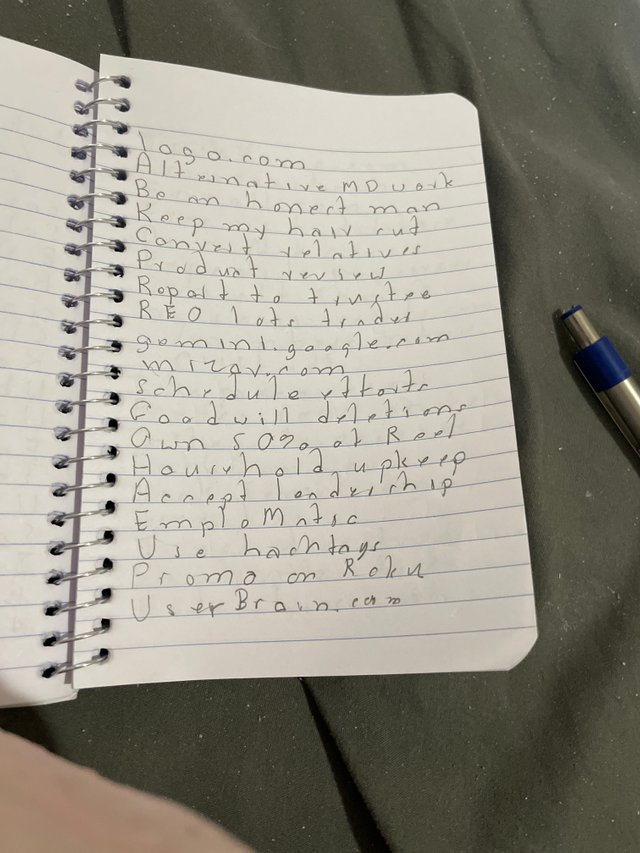 logo.com
Alternative MD work
Be an honest man
Keep my hair cut
Convert relatives
Product review
Report to trustee
REO lots trader
gemini.google.com
mizay.com
Schedule efforts
Goodwill deletions
Own 50% of Reel
Household upkeep
Accept leadership
Emplo
Use hashtags
Promo on Roku
UserBrain.com